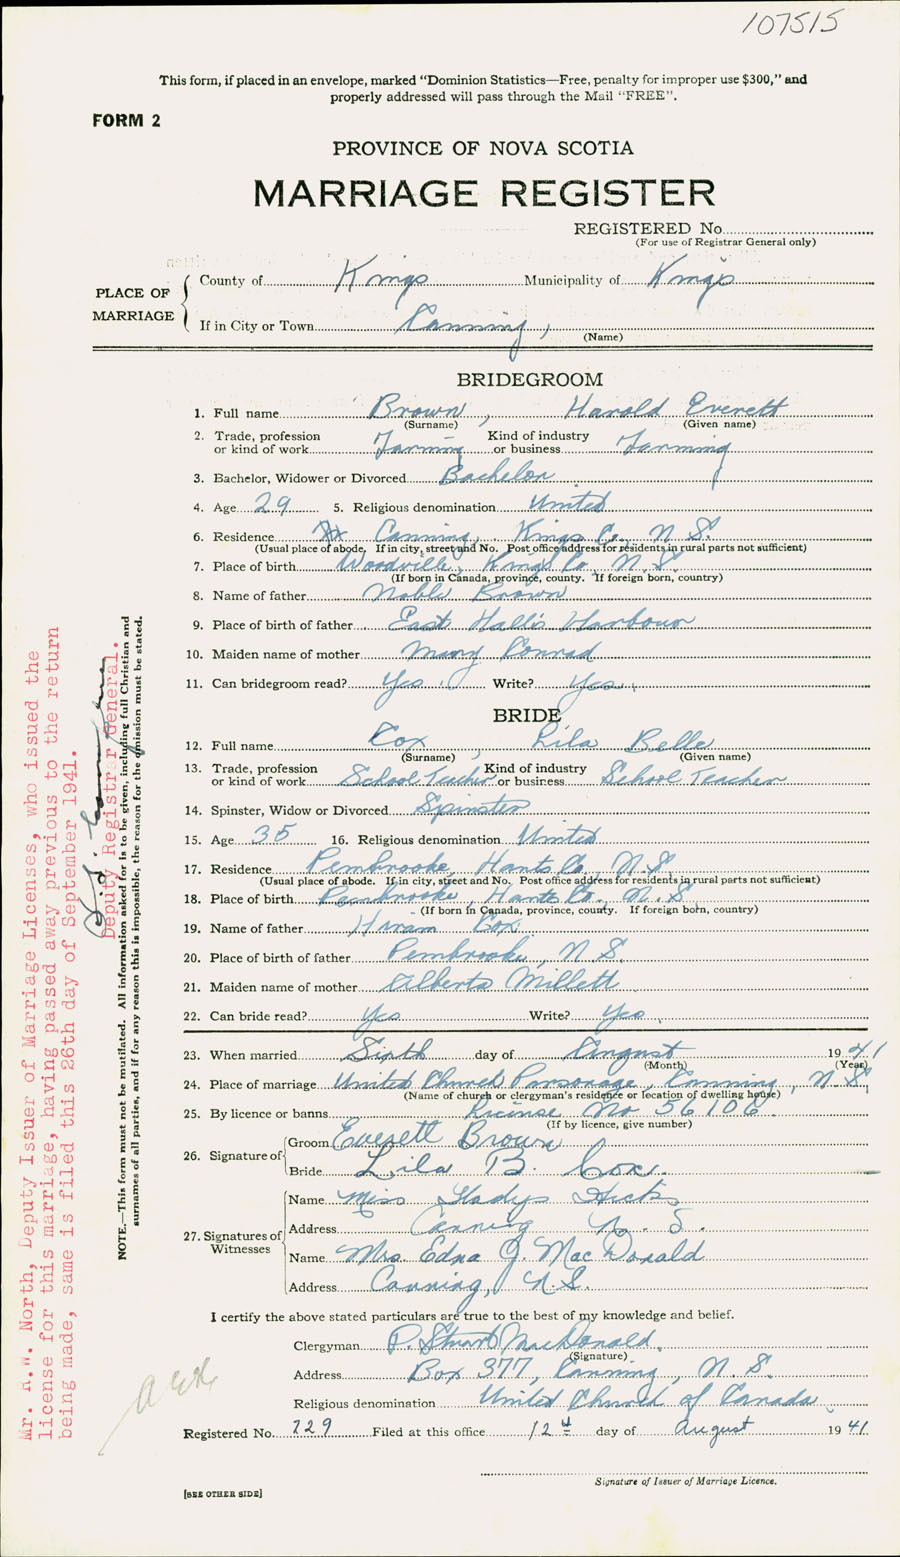 107515
This form, if placed in an envelope, marked "Dominion Statistics—Free, penalty for improper use $300," and
properly addressed will pass through the Mail "FREE".
FORM 2
PROVINCE OF NOVA SCOTIA
MARRIAGE REGISTER
REGISTERED No.
(For use of Registrar General only)
PLACE OF MARRIAGE
County of Kings Municipality of Kings
If in City or Town Canning,
(Name)
BRIDEGROOM
1. Full name Brown, Harold Everett
(Surname) (Given name)
2. Trade, profession or kind of work Farming Kind of industry or business Farming
3. Bachelor, Widower or Divorced Bachelor
4. Age 29 5. Religious denomination United
6. Residence Canning, Kings Co. N.S.
(Usual place of abode. If in city, street and No. Post office address for residents in rural parts not sufficient)
7. Place of birth Woodville, Kings Co. N.S.
(If born in Canada, province, county. If foreign born, country)
8. Name of father Noble Brown
9. Place of birth of father East Halls Harbour
10. Maiden name of mother Mary Conrad
11. Can bridegroom read? Yes. Write? Yes.
BRIDE
12. Full name Cox, Lila Belle
(Surname) (Given name)
13. Trade, profession or kind of work School Teacher Kind of industry or business School Teacher
14. Spinster, Widow or Divorced Spinster
15. Age 35 16. Religious denomination United
17. Residence Pembrooke, Hants Co., N.S.
(Usual place of abode. If in city, street and No. Post office address for residents in rural parts not sufficient)
18. Place of birth Pembrooke, Hants Co. N.S
(If born in Canada, province, county. If foreign born, country)
19. Name of father Hiram Cox
20. Place of birth of father Pembrooke, N.S.
21. Maiden name of mother Alberta Millett
22. Can bride read? Yes Write? Yes.
23. When married Sixth day of August 1941
(Month) (Year)
24. Place of marriage United Church Parsonage, Canning, N.S.
(Name of church or clergyman's residence or location of dwelling house)
25. By licence or banns License No 56106.
(If by licence, give number)
26. Signature of
Groom Everett Brown
Bride Lila B. Cox.
27. Signatures of Witnesses
Name Miss Gladys Hicks
Address Canning N.S.
Name Mrs. Edna G. MacDonald
Address Canning, N.S.
I certify the above stated particulars are true to the best of my knowledge and belief.
Clergyman P. Stuart MacDonald.
(Signature)
Address Box 377, Canning, N.S.
Religious denomination United Church of Canada
Registered No. 729 Filed at this office 12th day of August 1941
Signature of Issuer of Marriage Licence.
[SEE OTHER SIDE]
NOTE.—This form must not be mutilated. All information asked for is to be given, including full Christian and
surnames of all parties, and if for any reason this is impossible, the reason for the omission must be stated.
Mr. R.W. North, Deputy Issuer of Marriage Licenses, who issued the
license for this marriage, having passed away previous to the return
being made, same is filed this 26th day of September 1941.
Deputy Registrar General.